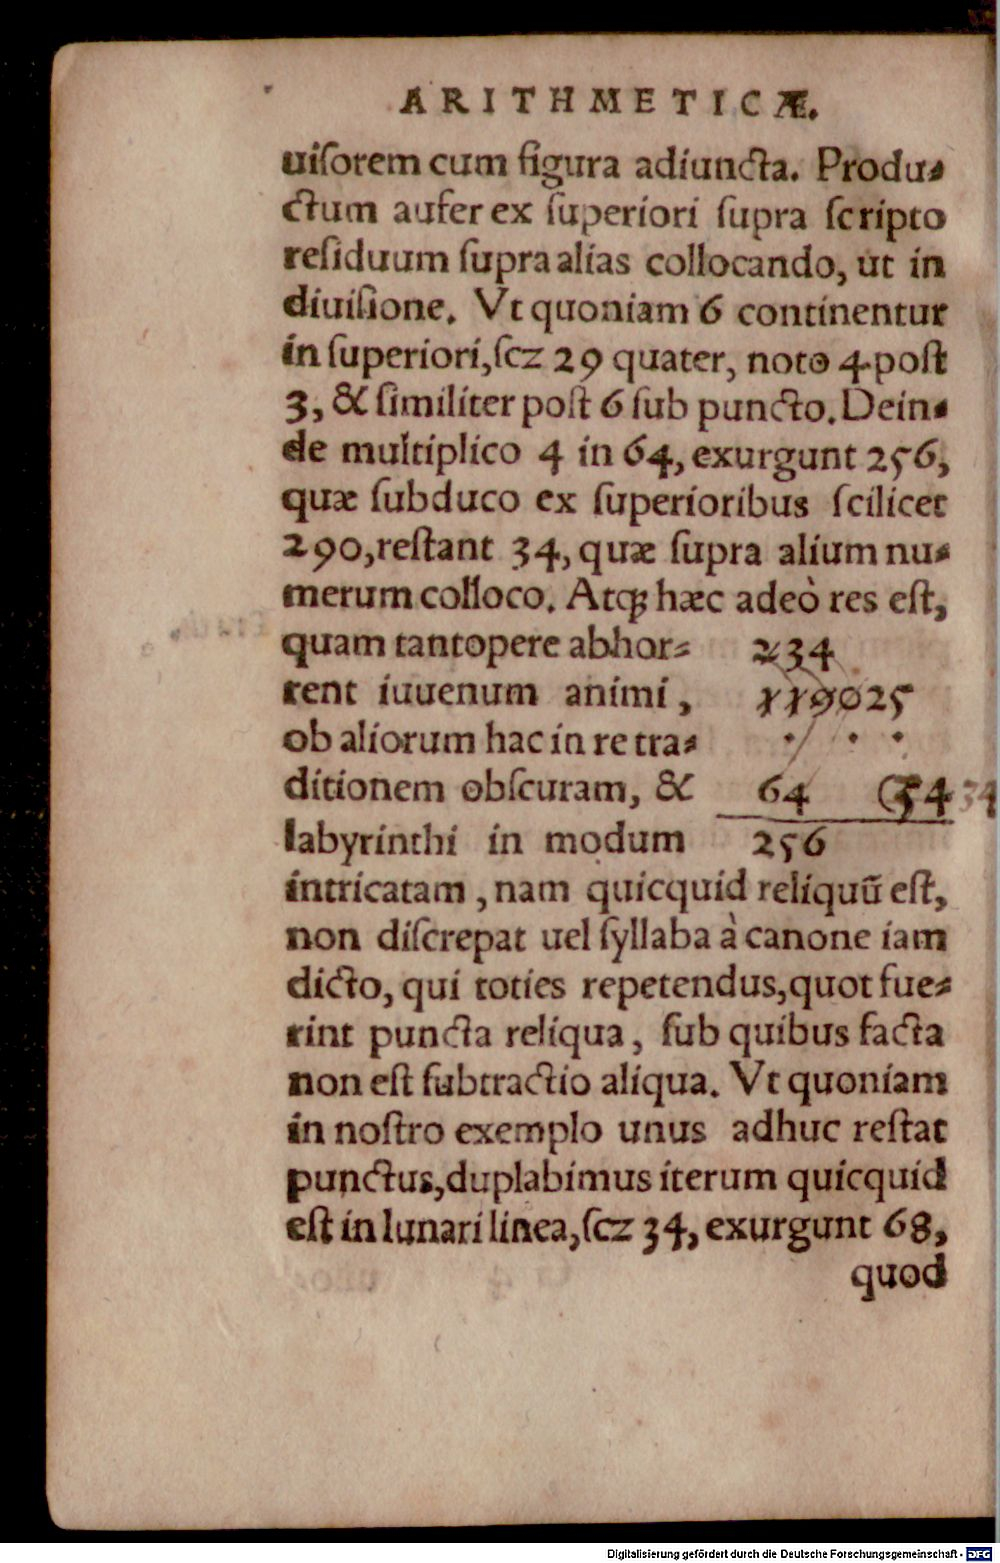 ARITHMETICÆ.
uiſorem cum figura adiuncta. Produ⸗
ctum aufer ex ſuperiori ſupra ſcripto
reſiduum ſupra alias collocando, ut in
diuiſione. Vt quoniam 6 continentur
in ſuperiori, ſcz 29 quater, noto 4 poſt
3, & ſimiliter poſt 6 ſub puncto. Dein⸗
de multiplico 4 in 64, exurgunt 256,
quæ ſubduco ex ſuperioribus ſcilicet
290, reſtant 34, quæ ſupra alium nu⸗
merum colloco. Atqꝫ hæc adeò res eſt,
quam tantopere abhor⸗ 234
rent iuuenum animi, 119025
ob aliorum hac in re tra⸗ . . .
ditionem obſcuram, & 64 (34 34
labyrinthi in modum 256
intricatam, nam quicquid reliquũ eſt,
non diſcrepat uel ſyllaba à canone iam
dicto, qui toties repetendus, quot fue⸗
rint puncta reliqua, ſub quibus facta
non eſt ſubtractio aliqua. Vt quoniam
in noſtro exemplo unus adhuc reſtat
punctus, duplabimus iterum quicquid
eſt in lunari linea, ſcz 34, exurgunt 68,
quod
Digitalisierung gefördert durch die Deutsche Forschungsgemeinschaft - DFG